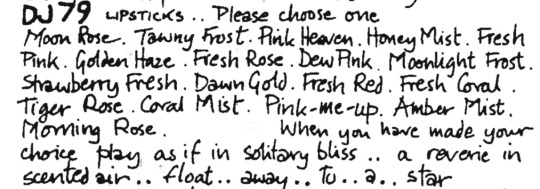 DJ79 LIPSTICKS.. Please choose one
Moon Rose. Tawny Frost. Pink Heaven. Honey Mist. Fresh
Pink. Golden Haze. Fresh Rose. Dew Pink. Moonlight Frost.
Strawberry Fresh. Dawn Gold. Fresh Red. Fresh Coral.
Tiger Rose. Coral Mist. Pink-me-up. Amber Mist.
Morning Rose. When you have made your
choice play as if in solitary bliss .. a reverie in
scented air.. float.. away.. to.. a.. star